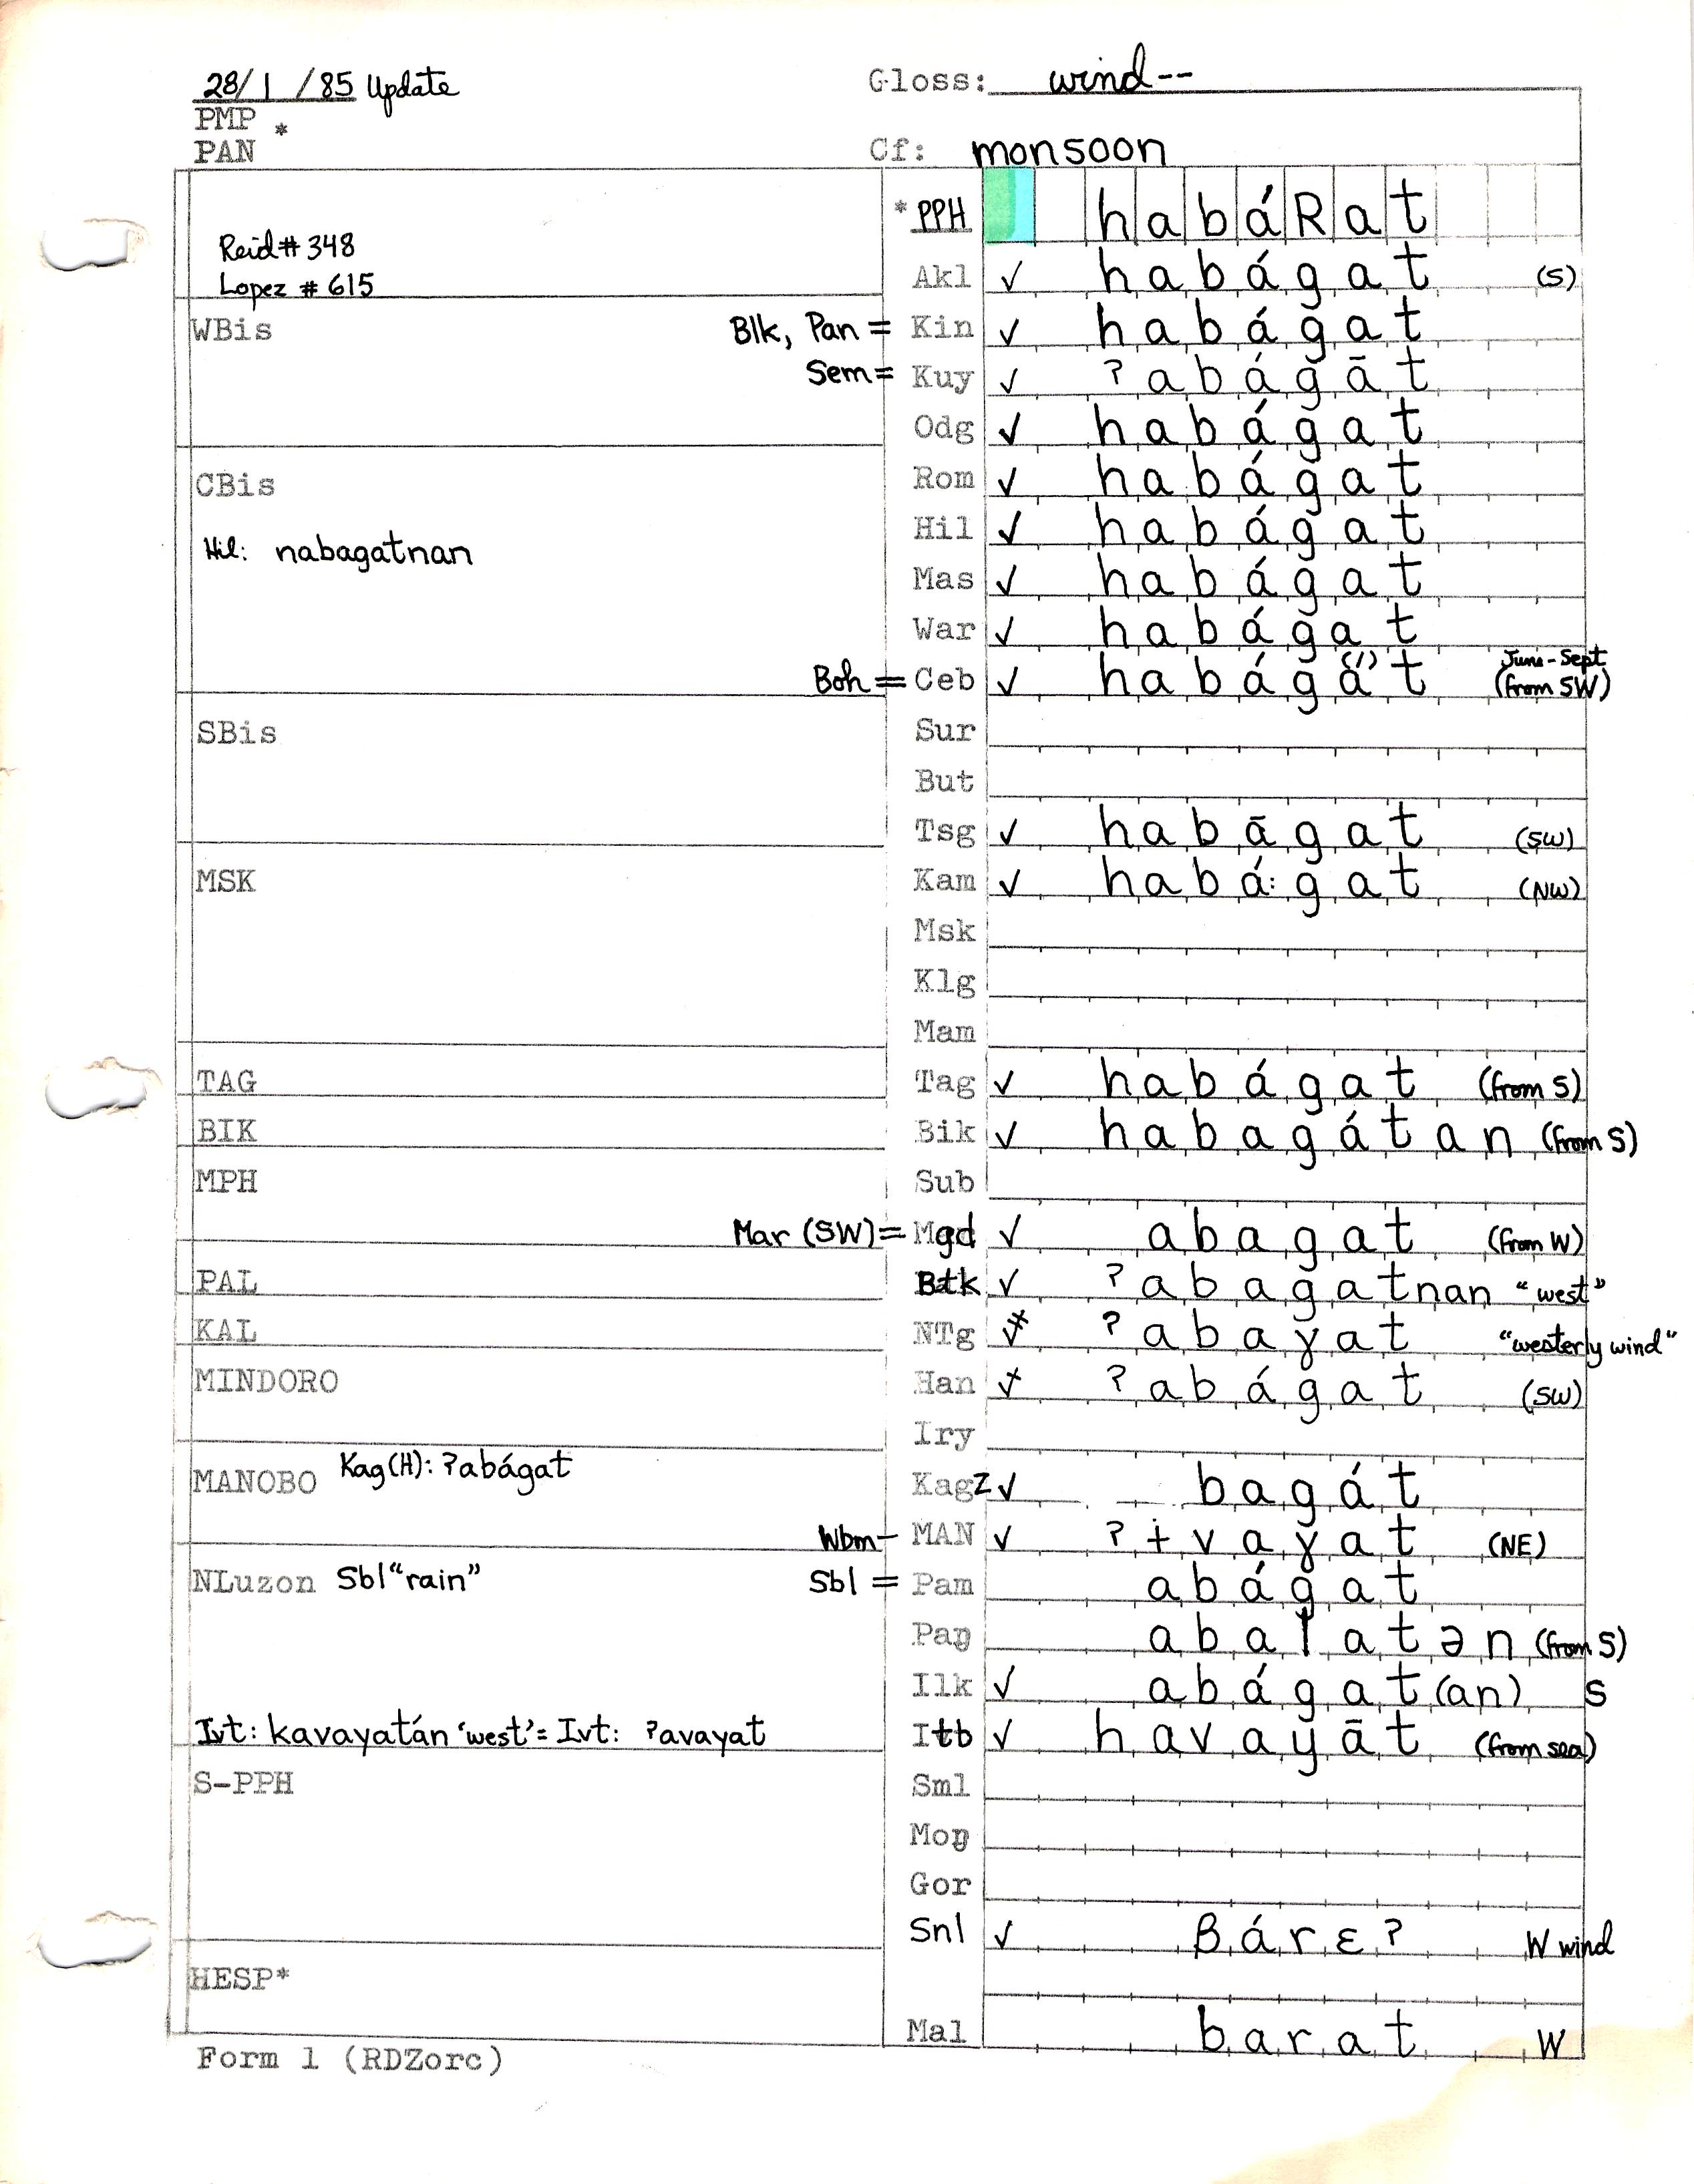 28/1/85 Update Gloss: wind--
PMP *
PAN Cf: monsoon
*PPH habáRat
Reid # 348
Lopez # 615
Akl ✓ habágat (S)
WBis Blk, Pan = Kin ✓ habágat
Sem = Kuy ✓ ?abágāt
Odg ✓ habágat
CBis Rom ✓ habágat
Hil: nabagatnan Hil ✓ habágat
Mas ✓ habágat
War ✓ habágat
Boh = Ceb ✓ habágá(')t June-Sept (from SW)
SBis Sur
But
Tsg ✓ habāgat (SW)
MSK Kam ✓ habá:gat (NW)
Msk
Klg
Mam
TAG Tag ✓ habágat (from S)
BIK Bik ✓ habagátan (from S)
MPH Sub
Mar (SW) = Mgd ✓ abagat (from W)
PAL Btk ✓ ?abagatnan "west"
KAL NTg ✓ ?abaɣat "westerly wind"
MINDORO Han ✓ ?abágat (SW)
Iry
MANOBO Kag(H): ?abágat KagZ ✓ bagát
Wbm- MAN ✓ ?ɨvaɣat (NE)
NLuzon Sbl "rain" Sbl = Pam abágat
Paŋ abalatən (from S)
Ilk ✓ abágat(an) S
Ivt: kavayatán 'west' = Ivt: ?avayat Itb ✓ havayāt (from sea)
S-PPH Sml
Moŋ
Gor
Snl ✓ Bárɛ? W wind
HESP*
Mal barat W
Form 1 (RDZorc)